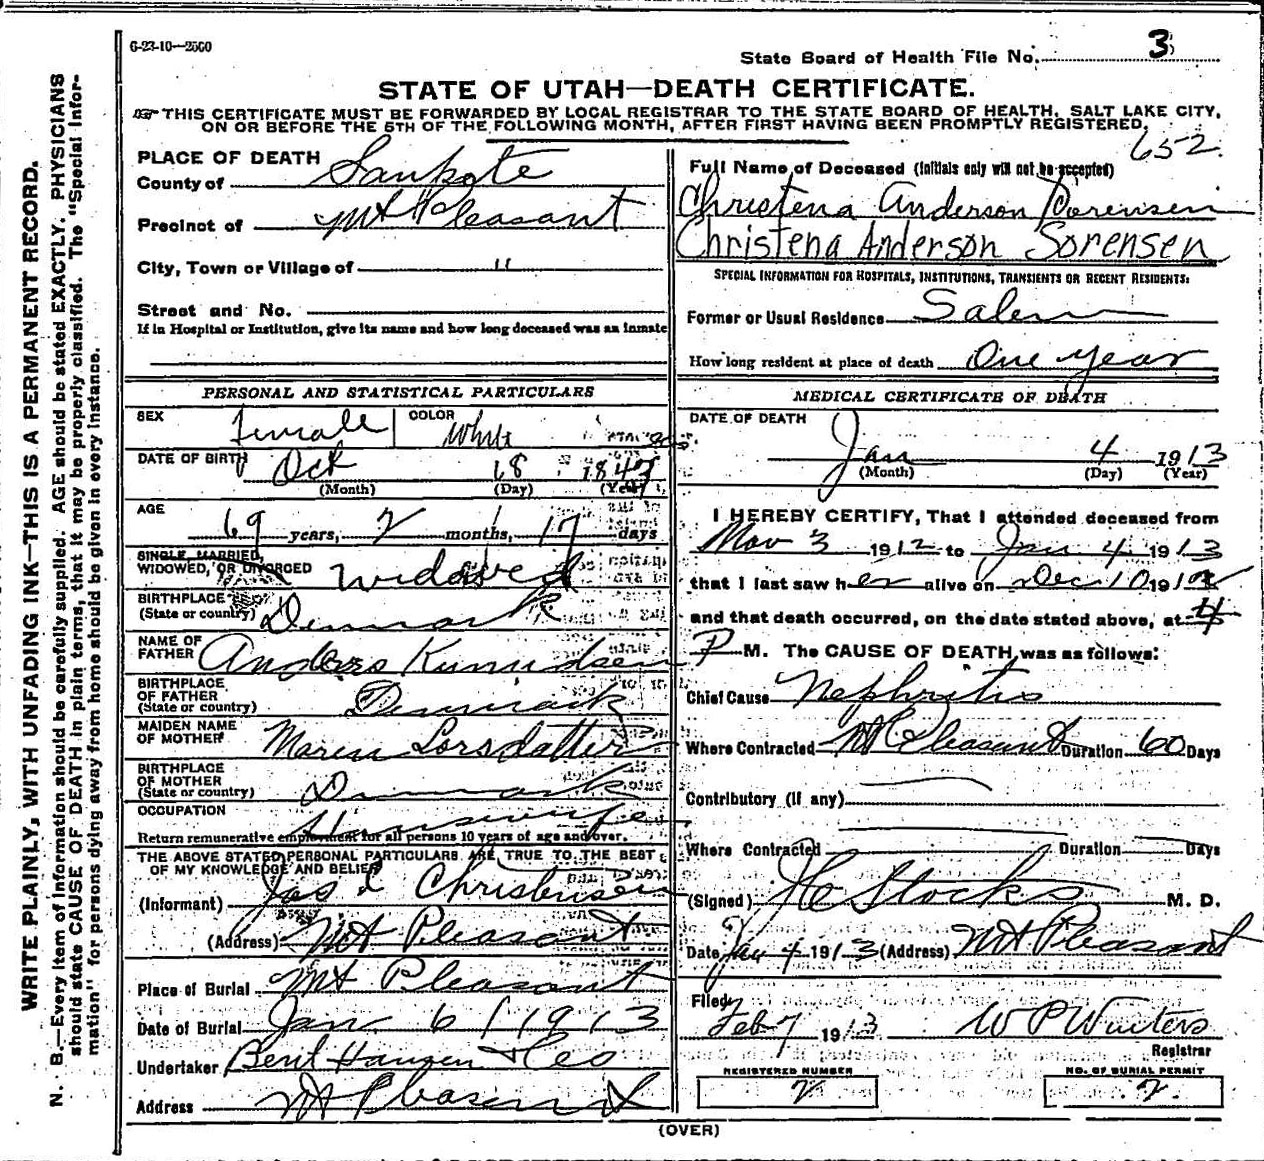 6-23-10—2500
State Board of Health File No. 3
STATE OF UTAH—DEATH CERTIFICATE.
THIS CERTIFICATE MUST BE FORWARDED BY LOCAL REGISTRAR TO THE STATE BOARD OF HEALTH, SALT LAKE CITY,
ON OR BEFORE THE 5TH OF THE FOLLOWING MONTH, AFTER FIRST HAVING BEEN PROMPTLY REGISTERED.
652
WRITE PLAINLY, WITH UNFADING INK—THIS IS A PERMANENT RECORD.
N. B.—Every item of information should be carefully supplied. AGE should be stated EXACTLY. PHYSICIANS
should state CAUSE OF DEATH in plain terms, that it may be properly classified. The "Special Infor-
mation" for persons dying away from home should be given in every instance.
PLACE OF DEATH
County of Sanpete
Precinct of Mt Pleasant
City, Town or Village of "
Street and No.
If in Hospital or Institution, give its name and how long deceased was an inmate
PERSONAL AND STATISTICAL PARTICULARS
SEX Female COLOR White
DATE OF BIRTH Oct 18 1843
(Month) (Day) (Year)
AGE 69 years, 2 months, 17 days
SINGLE, MARRIED,
WIDOWED, OR DIVORCED widowed
BIRTHPLACE
(State or country) Denmark
NAME OF
FATHER Anders Knudsen
BIRTHPLACE
OF FATHER
(State or country) Denmark
MAIDEN NAME
OF MOTHER Maren Larsdatter
BIRTHPLACE
OF MOTHER
(State or country) Denmark
OCCUPATION Housewife
Return remunerative employment for all persons 10 years of age and over.
THE ABOVE STATED PERSONAL PARTICULARS ARE TRUE TO THE BEST
OF MY KNOWLEDGE AND BELIEF
(Informant) Jas L Christensen
(Address) Mt Pleasant
Place of Burial Mt Pleasant
Date of Burial Jan 6 / 1913
Undertaker Bent Hansen & Co
Address Mt Pleasant
Full Name of Deceased (Initials only will not be accepted)
Christena Anderson Sorensen
Christena Anderson Sorensen
SPECIAL INFORMATION FOR HOSPITALS, INSTITUTIONS, TRANSIENTS OR RECENT RESIDENTS:
Former or Usual Residence Salem
How long resident at place of death One year
MEDICAL CERTIFICATE OF DEATH
DATE OF DEATH
Jan 4 1913
(Month) (Day) (Year)
I HEREBY CERTIFY, That I attended deceased from
Nov 3 1912 to Jan 4 1913
that I last saw her alive on Dec 10 1912
and that death occurred, on the date stated above, at 4
P M. The CAUSE OF DEATH was as follows:
Chief Cause Nephritis
Where Contracted Mt Pleasant Duration 60 Days
Contributory (if any)
Where Contracted Duration Days
(Signed) Stocks M. D.
Date Jan 4 1913 (Address) Mt Pleasant
Filed
Feb 7 1913 W P Winters
Registrar
REGISTERED NUMBER
2
NO. OF BURIAL PERMIT
2
(OVER)